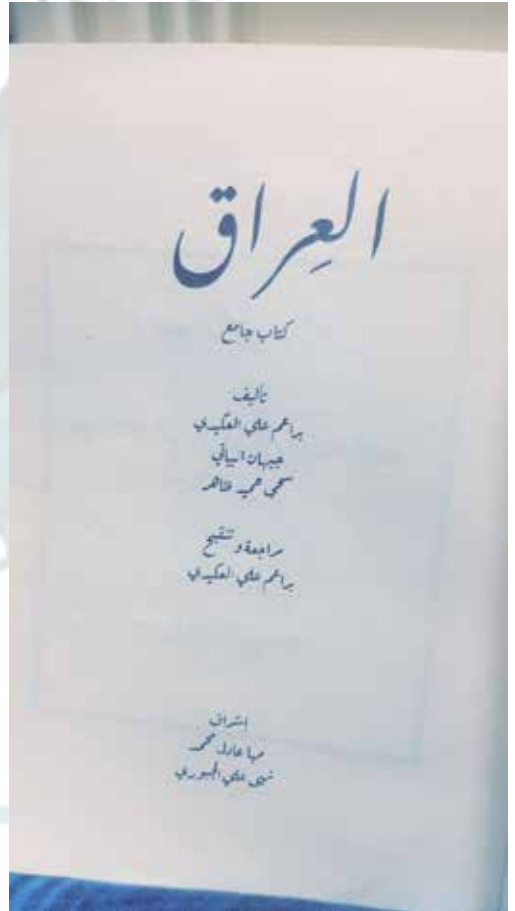 العِراق
كتاب جامع
تأليف
براعم علي العكيدي
جيهان البياتي
ضحى حميد ظاهر
مراجعة وتنقيح
براعم علي العكيدي
إشراف
مها عادل محمد
علي الجبوري